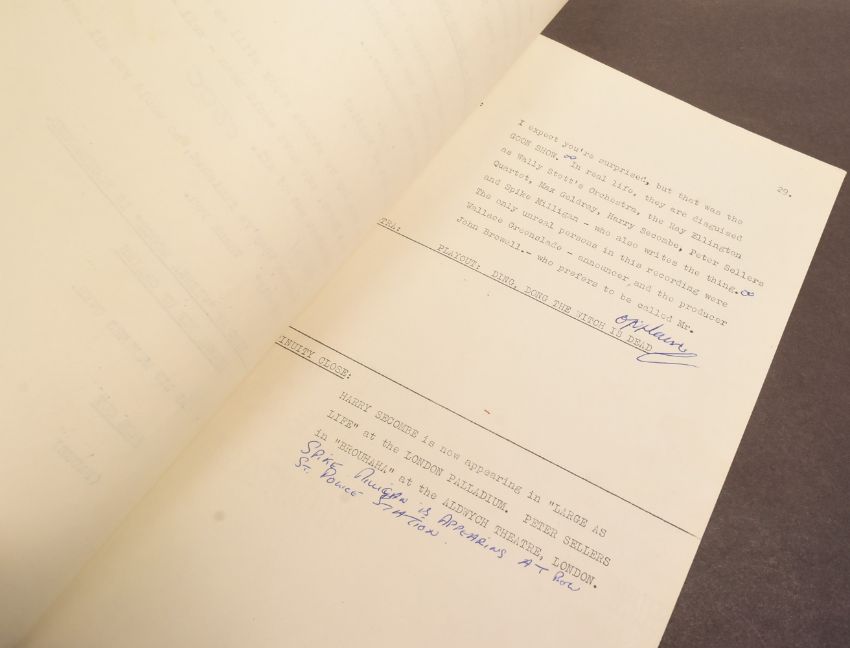 29.
I expect you're surprised, but that was the
GOON SHOW. ∞ In real life, they are disguised
as Wally Stott's Orchestra, the Ray Ellington
Quartet, Max Geldray, Harry Secombe, Peter Sellers
and Spike Milligan - who also writes the thing. ∞
The only unreal persons in this recording were
Wallace Greenslade - announcer, and the producer
John Browell.- who prefers to be called Mr.
TRA: PLAYOUT: DING, DONG THE WITCH IS DEAD
INUITY CLOSE:
HARRY SECOMBE is now appearing in "LARGE AS
LIFE" at the LONDON PALLADIUM. PETER SELLERS
in "BROUHAHA" at the ALDWYCH THEATRE, LONDON.
SPIKE MILLIGAN IS APPEARING AT BOW
ST. POLICE STATION.